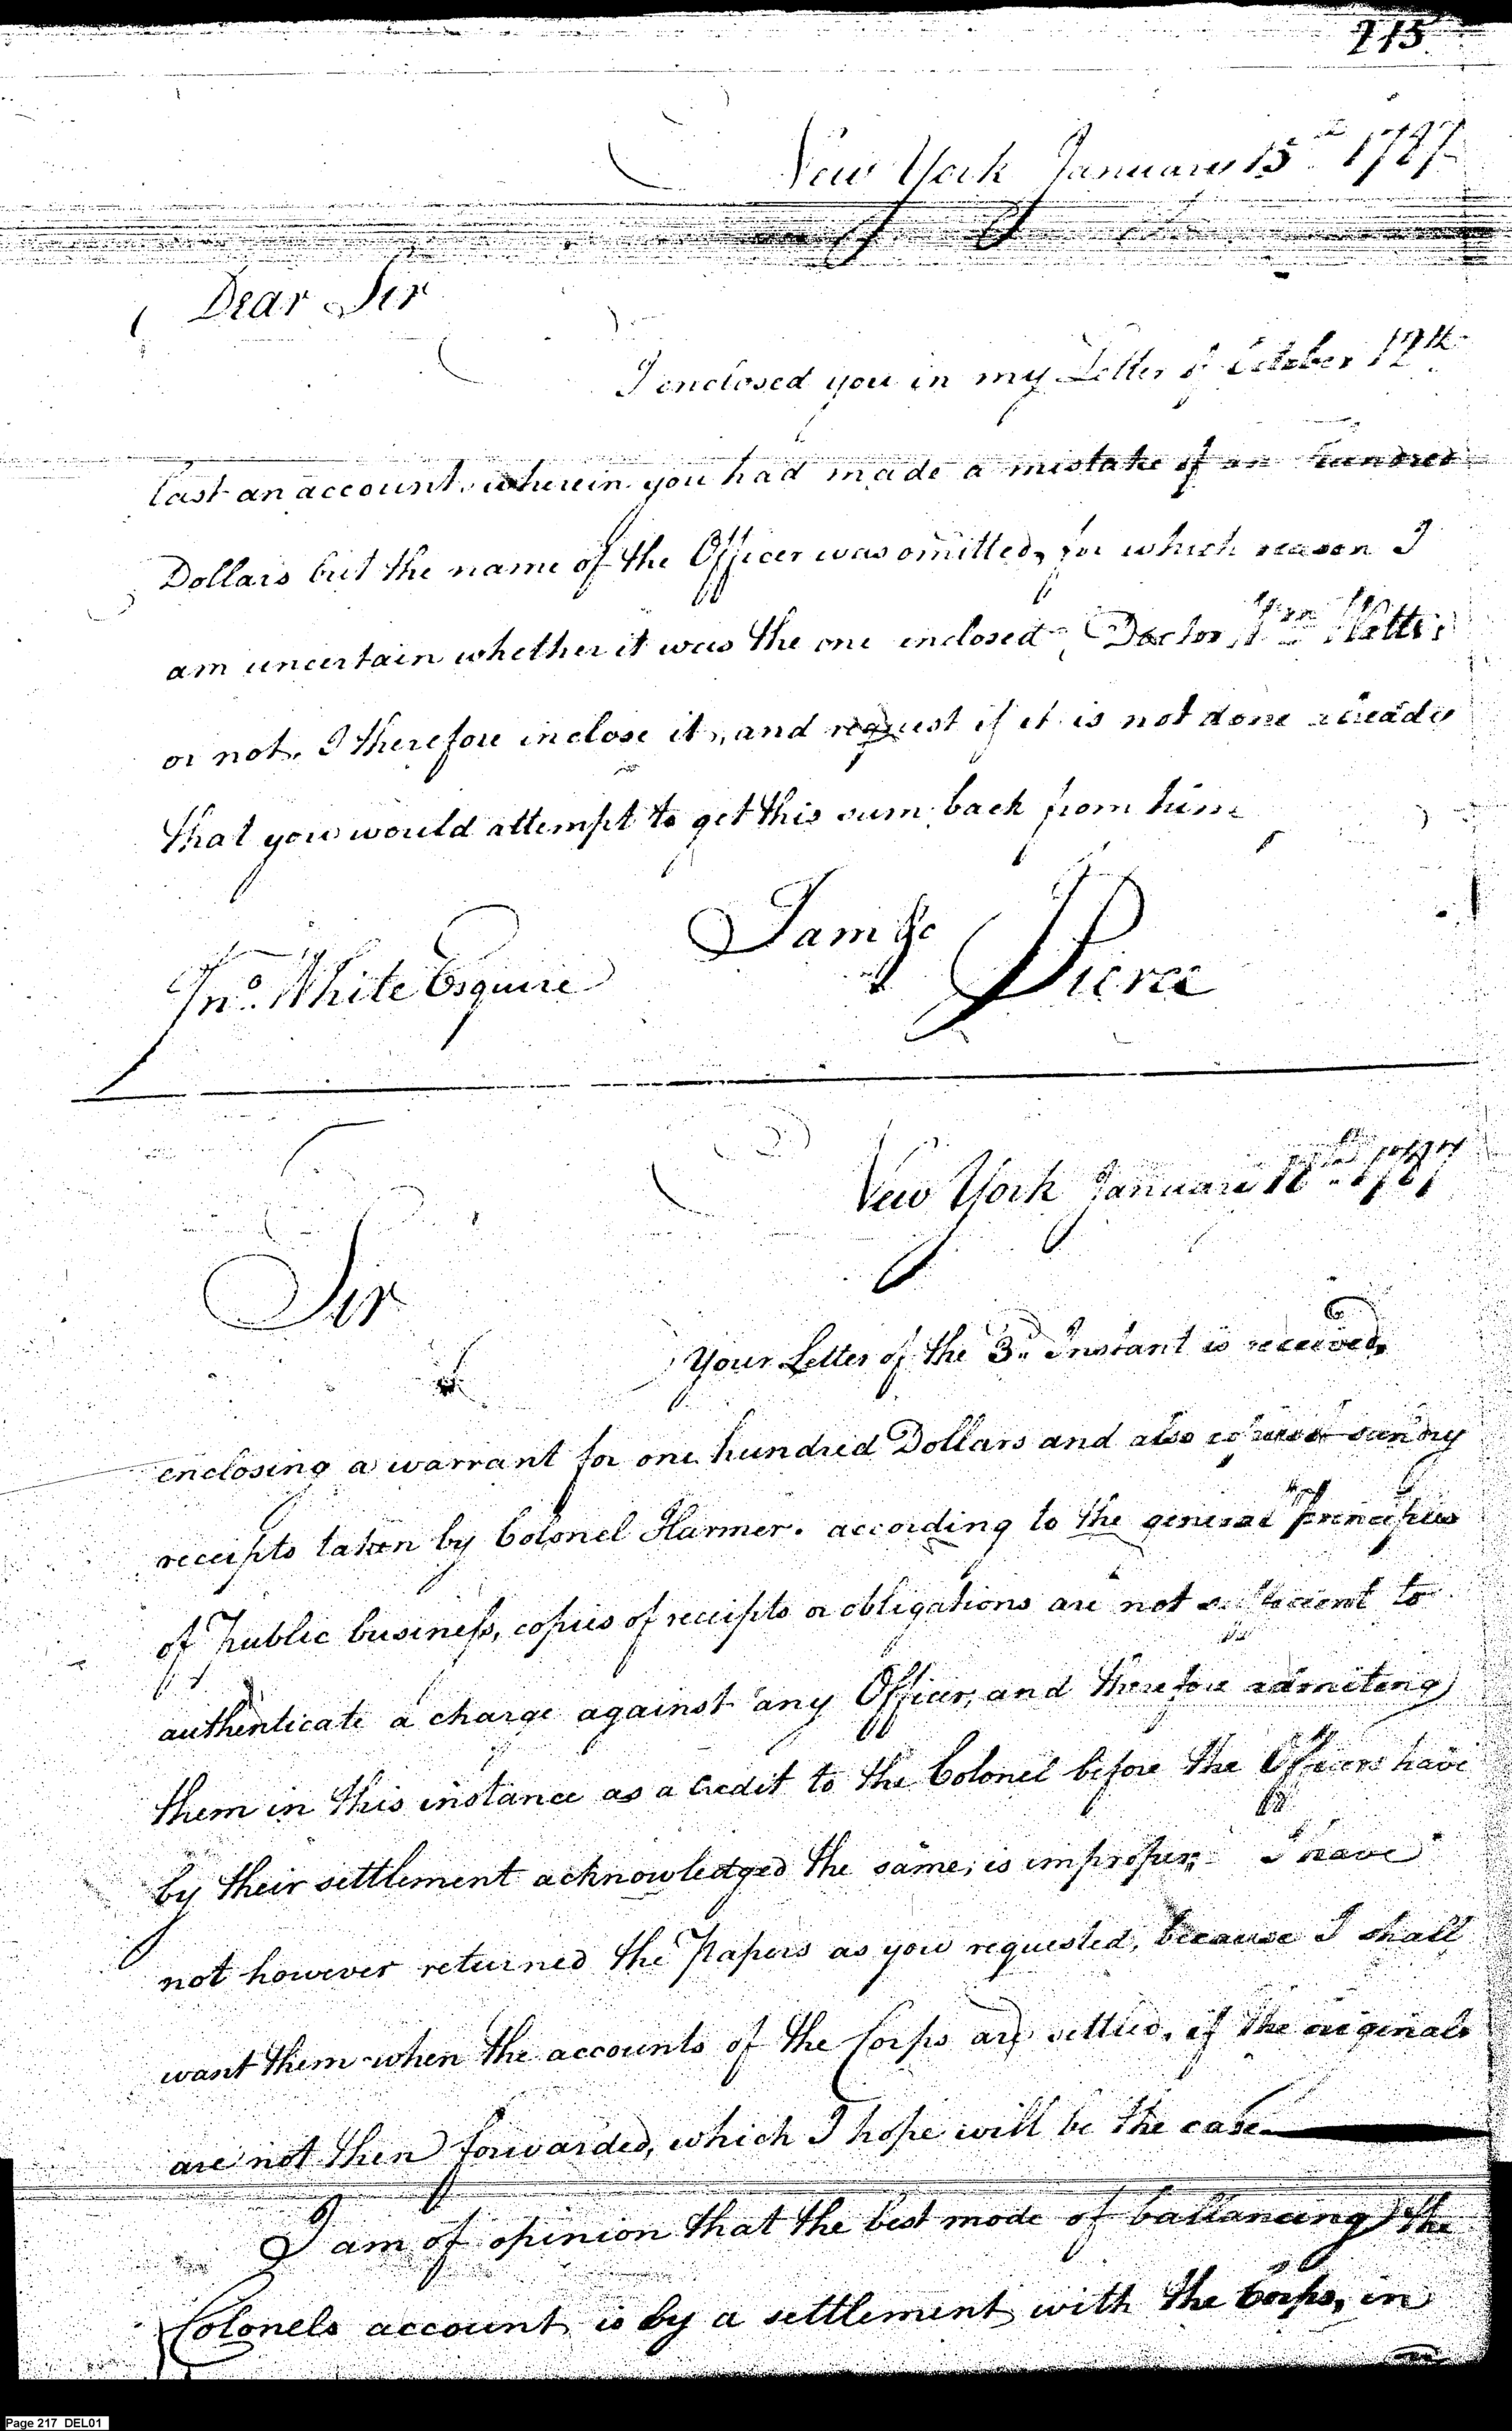 215
New York January 15th 1787
Dear Sir
I enclosed you in my Letter of October 12th
last an account, wherein you had made a mistake of an hundred
Dollars but the name of the Officer was omitted, for which reason I
am uncertain whether it was the one inclosed Doctor
or not, I therefore inclose it, and request if it is not done already
that you would attempt to get this sum back from him
I am &c
Jno. White Esquire
Pierce
New York January 1787
Sir
Your Letter of the 3d. Instant is received,
enclosing a warrant for one hundred Dollars and also sundry
receipts taken by Colonel Harmer. according to the general Principles
of Public business, copies of receipts or obligations are not sufficient to
authenticate a charge against any Officer, and therefore admiting
them in this instance as a Credit to the Colonel before the Officers have
by their settlement acknowledged the same, is improper; I have
not however returned the Papers as you requested, because I shall
want them when the accounts of the Corps are settled, if the originals
are not then forwarded, which I hope will be the case
I am of opinion that the best mode of ballancing the
Colonels account is by a settlement with the Corps, in
Page 217 DEL01